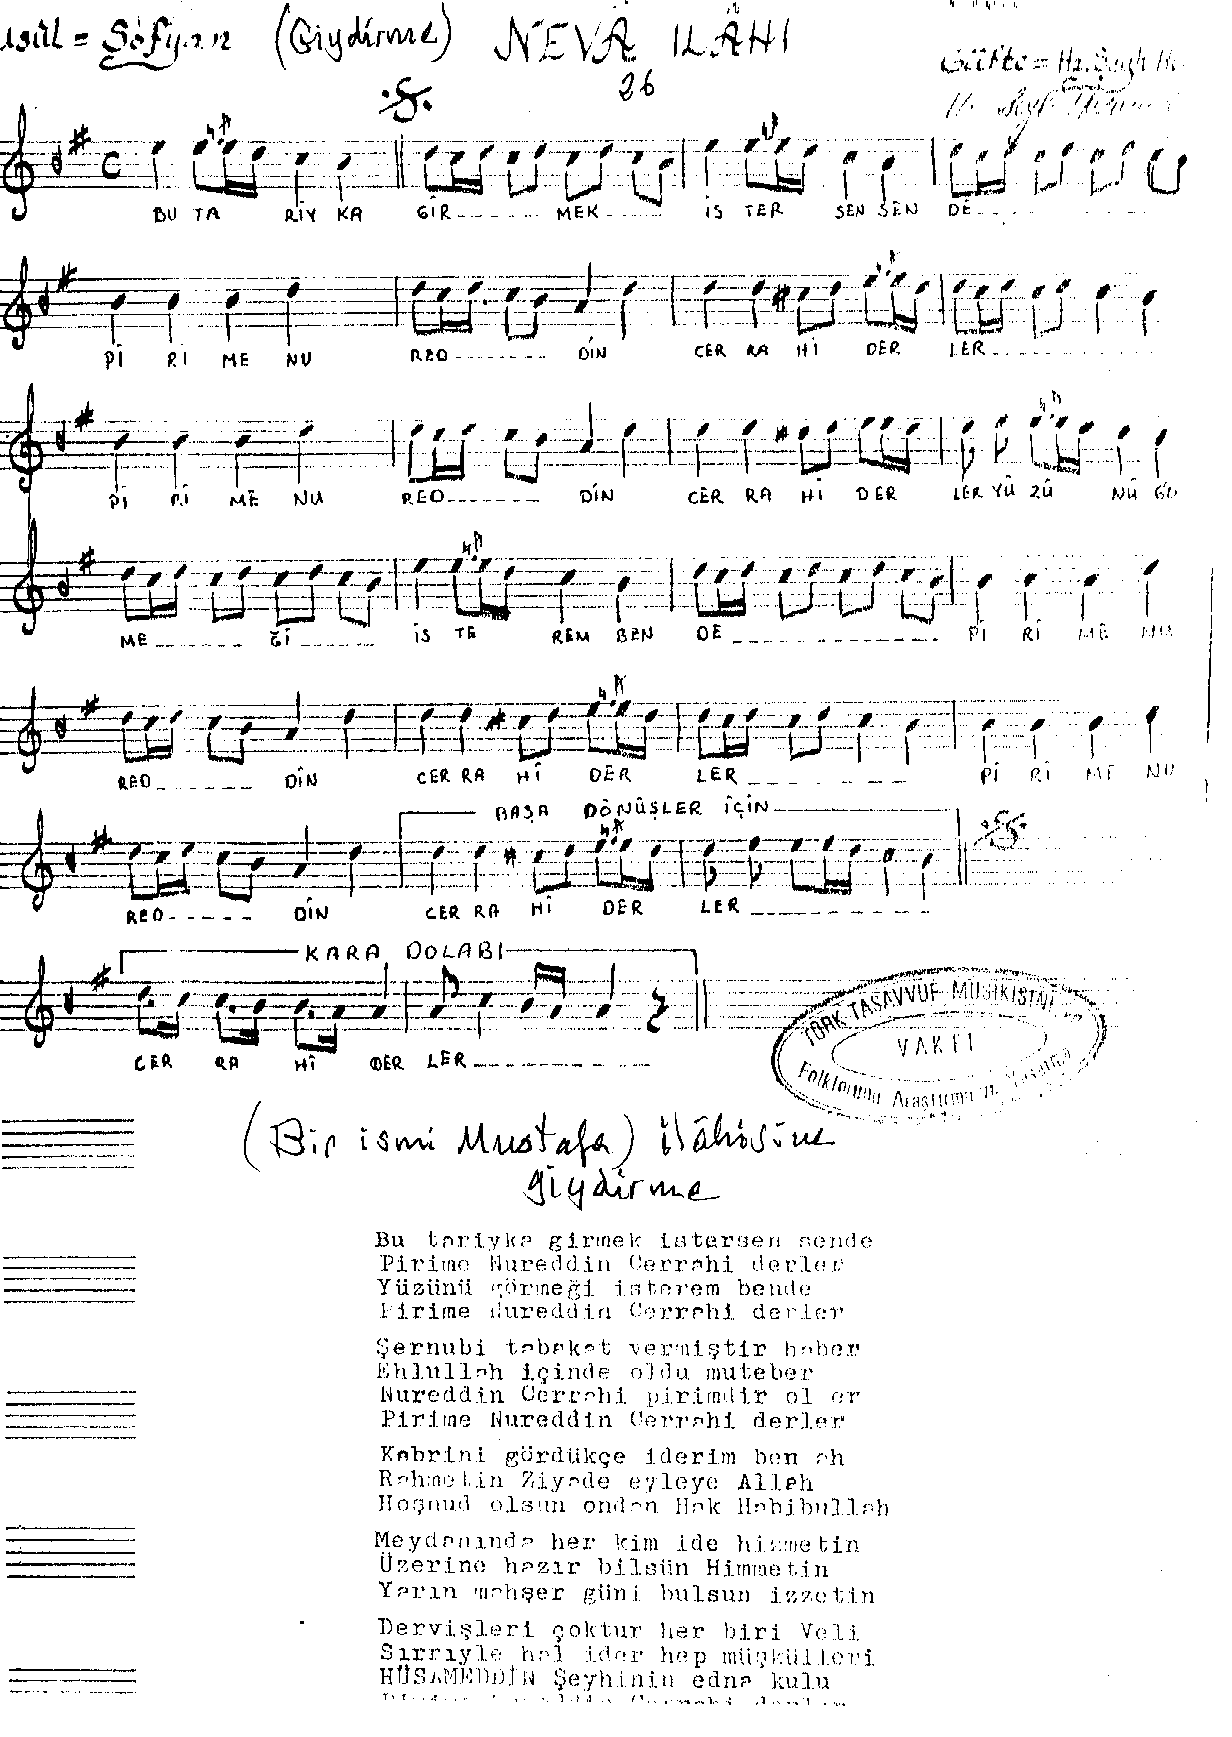 usûl = Sofyan (Giydirme) NEVÂ ILÂHI
26
Güfte = Hz.
BU TA RİY KA GİR------ MEK----- İS TER SEN SEN DE---------
Pİ Rİ ME NU RED------- DİN CER RA Hİ DER LER---------
Pİ Rİ ME NU RED------- DİN CER RA Hİ DER LER YÜ ZÜ NÜ GÖ
ME------ Ğİ------ İS TE REM BEN DE---------- Pİ Rİ ME NU
RED------ DİN CER RA Hİ DER LER-------- Pİ Rİ ME NU
BAŞA DÖNÜŞLER İÇİN
RED----- DİN CER RA Hİ DER LER---------
KARA DOLABI
CER RA Hİ DER LER---------
TÜRK TASAVVUF MUSIKISINI
VAKFI
Folklorunu Araştırma Yaşatma
(Bir ismi Mustafa) ilâhisine
giydirme
Bu tariyka girmek istersen sende
Pirime Nureddin Cerrahi derler
Yüzünü görmeği isterem bende
Pirime Nureddin Cerrahi derler
Şernubi tabakat vermiştir haber
Ehlullah içinde oldu muteber
Nureddin Cerrahi pirimdir ol er
Pirime Nureddin Cerrahi derler
Kabrini gördükçe iderim ben ah
Rahmetin Ziyade eyleye Allah
Hoşnud olsun ondan Hak Habibullah
Meydanında her kim ide hizmetin
Üzerine hazır bilsün Himmetin
Yarın mahşer güni bulsun izzetin
Dervişleri çoktur her biri Veli
Sırrıyle hal ider hep müşkülleri
HÜSAMEDDİN Şeyhinin edna kulu